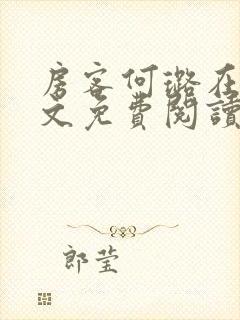 房客何璐在
文免費閱讀
郎莹